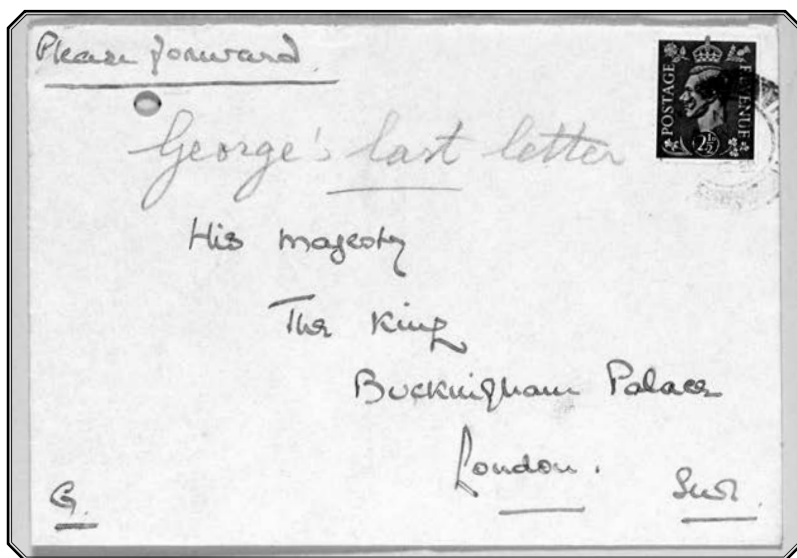 Please forward
POSTAGE REVENUE
2½
George's last letter
His Majesty
The King
Buckingham Palace
London.
G. SW1.